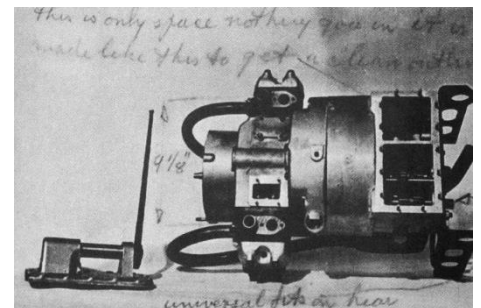 this is only space nothing goes in it is
made like this to get a clean outli
9 1/8"
universal fits on hear